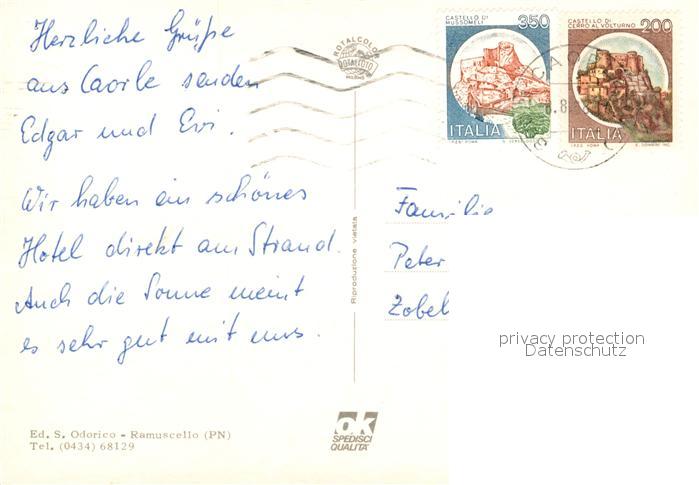 Herzliche Grüße
aus Caorle senden
Edgar und Evi.
Wir haben ein schönes
Hotel direkt am Strand.
Auch die Sonne meint
es sehr gut mit uns.
Ed. S. Odorico - Ramuscello (PN)
Tel. (0434) 68129
Riproduzione vietata
ROTALCOLOR
ROTALFOTO
MILANO
ok
SPEDISCI
QUALITA'
CASTELLO DI
MUSSOMELI
350
ITALIA
CASTELLO DI
CERRO AL VOLTURNO
200
ITALIA
Familie
Peter
Zobel
privacy protection
Datenschutz